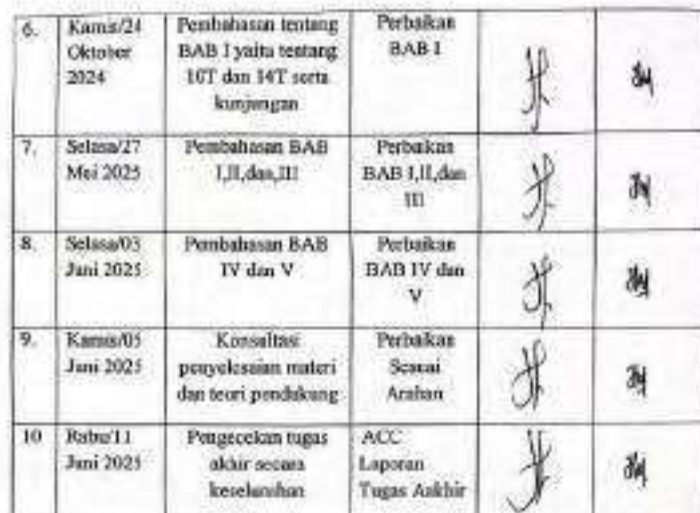 6.
Kamis/24
Oktober
2024
Pembahasan tentang
BAB I yaitu tentang
10T dan 14T serta
kunjungan
Perbaikan
BAB I
7.
Selasa/27
Mei 2025
Pembahasan BAB
I,II,dan,III
Perbaikan
BAB I,II,dan
III
8.
Selasa/03
Juni 2025
Pembahasan BAB
IV dan V
Perbaikan
BAB IV dan
V
9.
Kamis/05
Juni 2025
Konsultasi
penyelesaian materi
dan teori pendukung
Perbaikan
Sesuai
Arahan
10
Rabu/11
Juni 2025
Pengecekan tugas
akhir secara
keseluruhan
ACC
Laporan
Tugas Aakhir